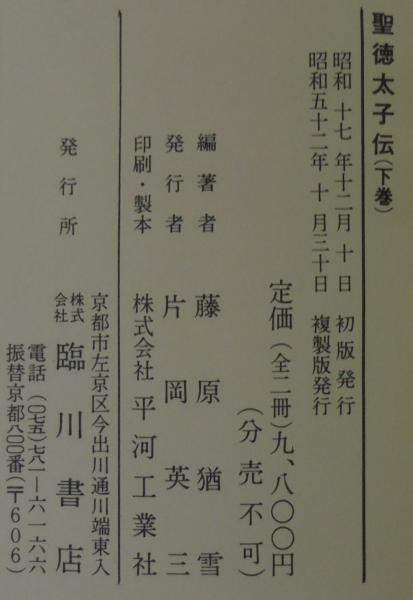 聖徳太子伝(下巻)
昭和 十七 年十二月 十 日 初版発行
昭和五十二年 十 月三十日 複製版発行
定価(全二冊)九、八〇〇円
(分売不可)
編著者 藤原猶雪
発行者 片岡英三
印刷・製本 株式会社 平河工業社
発行所 株式会社 臨川書店
京都市左京区今出川通川端東入
電話(〇七五)七八一―六一六六
振替京都八〇〇番(〒606)